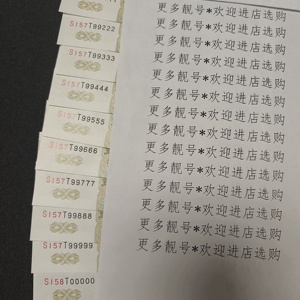 SI57T99222
SI57T99333
SI57T99444
SI57T99555
SI57T99666
SI57T99777
SI57T99888
SI57T99999
SI58T00000
更多靓号*欢迎进店选购
更多靓号*欢迎进店选购
更多靓号*欢迎进店选购
更多靓号*欢迎进店选购
更多靓号*欢迎进店选购
更多靓号*欢迎进店选购
更多靓号*欢迎进店选购
更多靓号*欢迎进店选购
更多靓号*欢迎进店选购
更多靓号*欢迎进店选购
更多靓号*欢迎进店选购
更多靓号*欢迎进店选购
更多靓号*欢迎进店选购